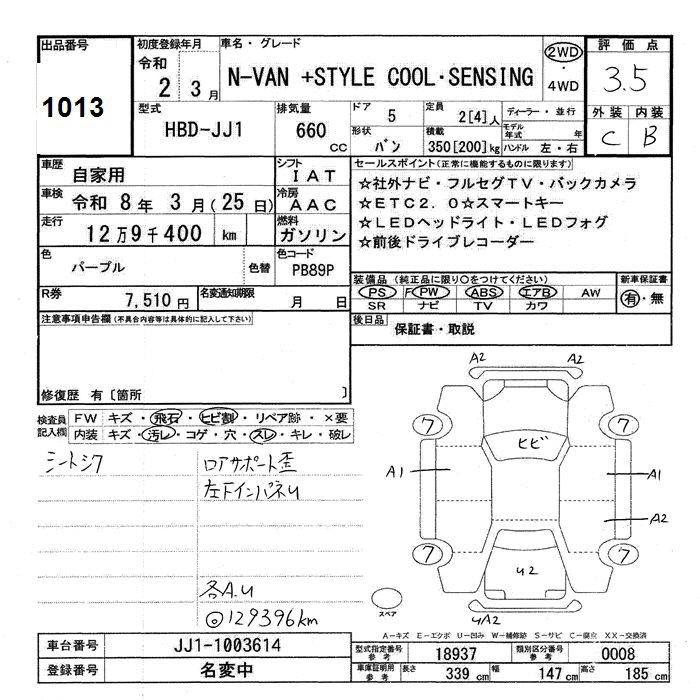 出品番号
1013
初度登録年月
令和
2 3月
車名・グレード
N-VAN +STYLE COOL・SENSING
2WD
・
4WD
評価点
3.5
外装 内装
C B
型式
HBD-JJ1
排気量
660
CC
ドア 5
形状 バン
定員 2[4]人
積載 350[200]kg
ディーラー・並行
モデル年式 年
ハンドル 左・右
車歴
自家用
シフト
IAT
車検
令和 8年 3月(25日)
冷房
AAC
走行
12万9千400 km
燃料
ガソリン
色
パープル
色替
色コード
PB89P
R券
7,510円
名変通知期限
月 日
セールスポイント(正常に機能するものに限ります)
☆社外ナビ・フルセグTV・バックカメラ
☆ETC2.0☆スマートキー
☆LEDヘッドライト・LEDフォグ
☆前後ドライブレコーダー
装備品 (純正品に限り○をつけてください)
PS PW ABS エアB AW
SR ナビ TV カワ
新車保証書
有・無
後日品
保証書・取説
注意事項申告欄(不具合内容等は具体的に記入して下さい)
修復歴 有〔箇所 〕
検査員
記入欄
FW キズ・飛石・ヒビ割・リペア跡・×要
内装 キズ・汚レ・コゲ・穴・スレ・キレ・破レ
シートシワ
ロアサポート歪
左下インパネU
各A.U
◎129396km
A2 A2
7 7
ヒビ
A1 A1
A2
7 7
U2
スペア
UA2
A-キズ E-エクボ U-凹み W-補修跡 S-サビ C-腐食 XX-交換済
車台番号
JJ1-1003614
登録番号
名変中
型式指定番号
参考
18937
類別区分番号
参考
0008
車庫証明用
参考
長さ 339 cm 幅 147 cm 高さ 185 cm